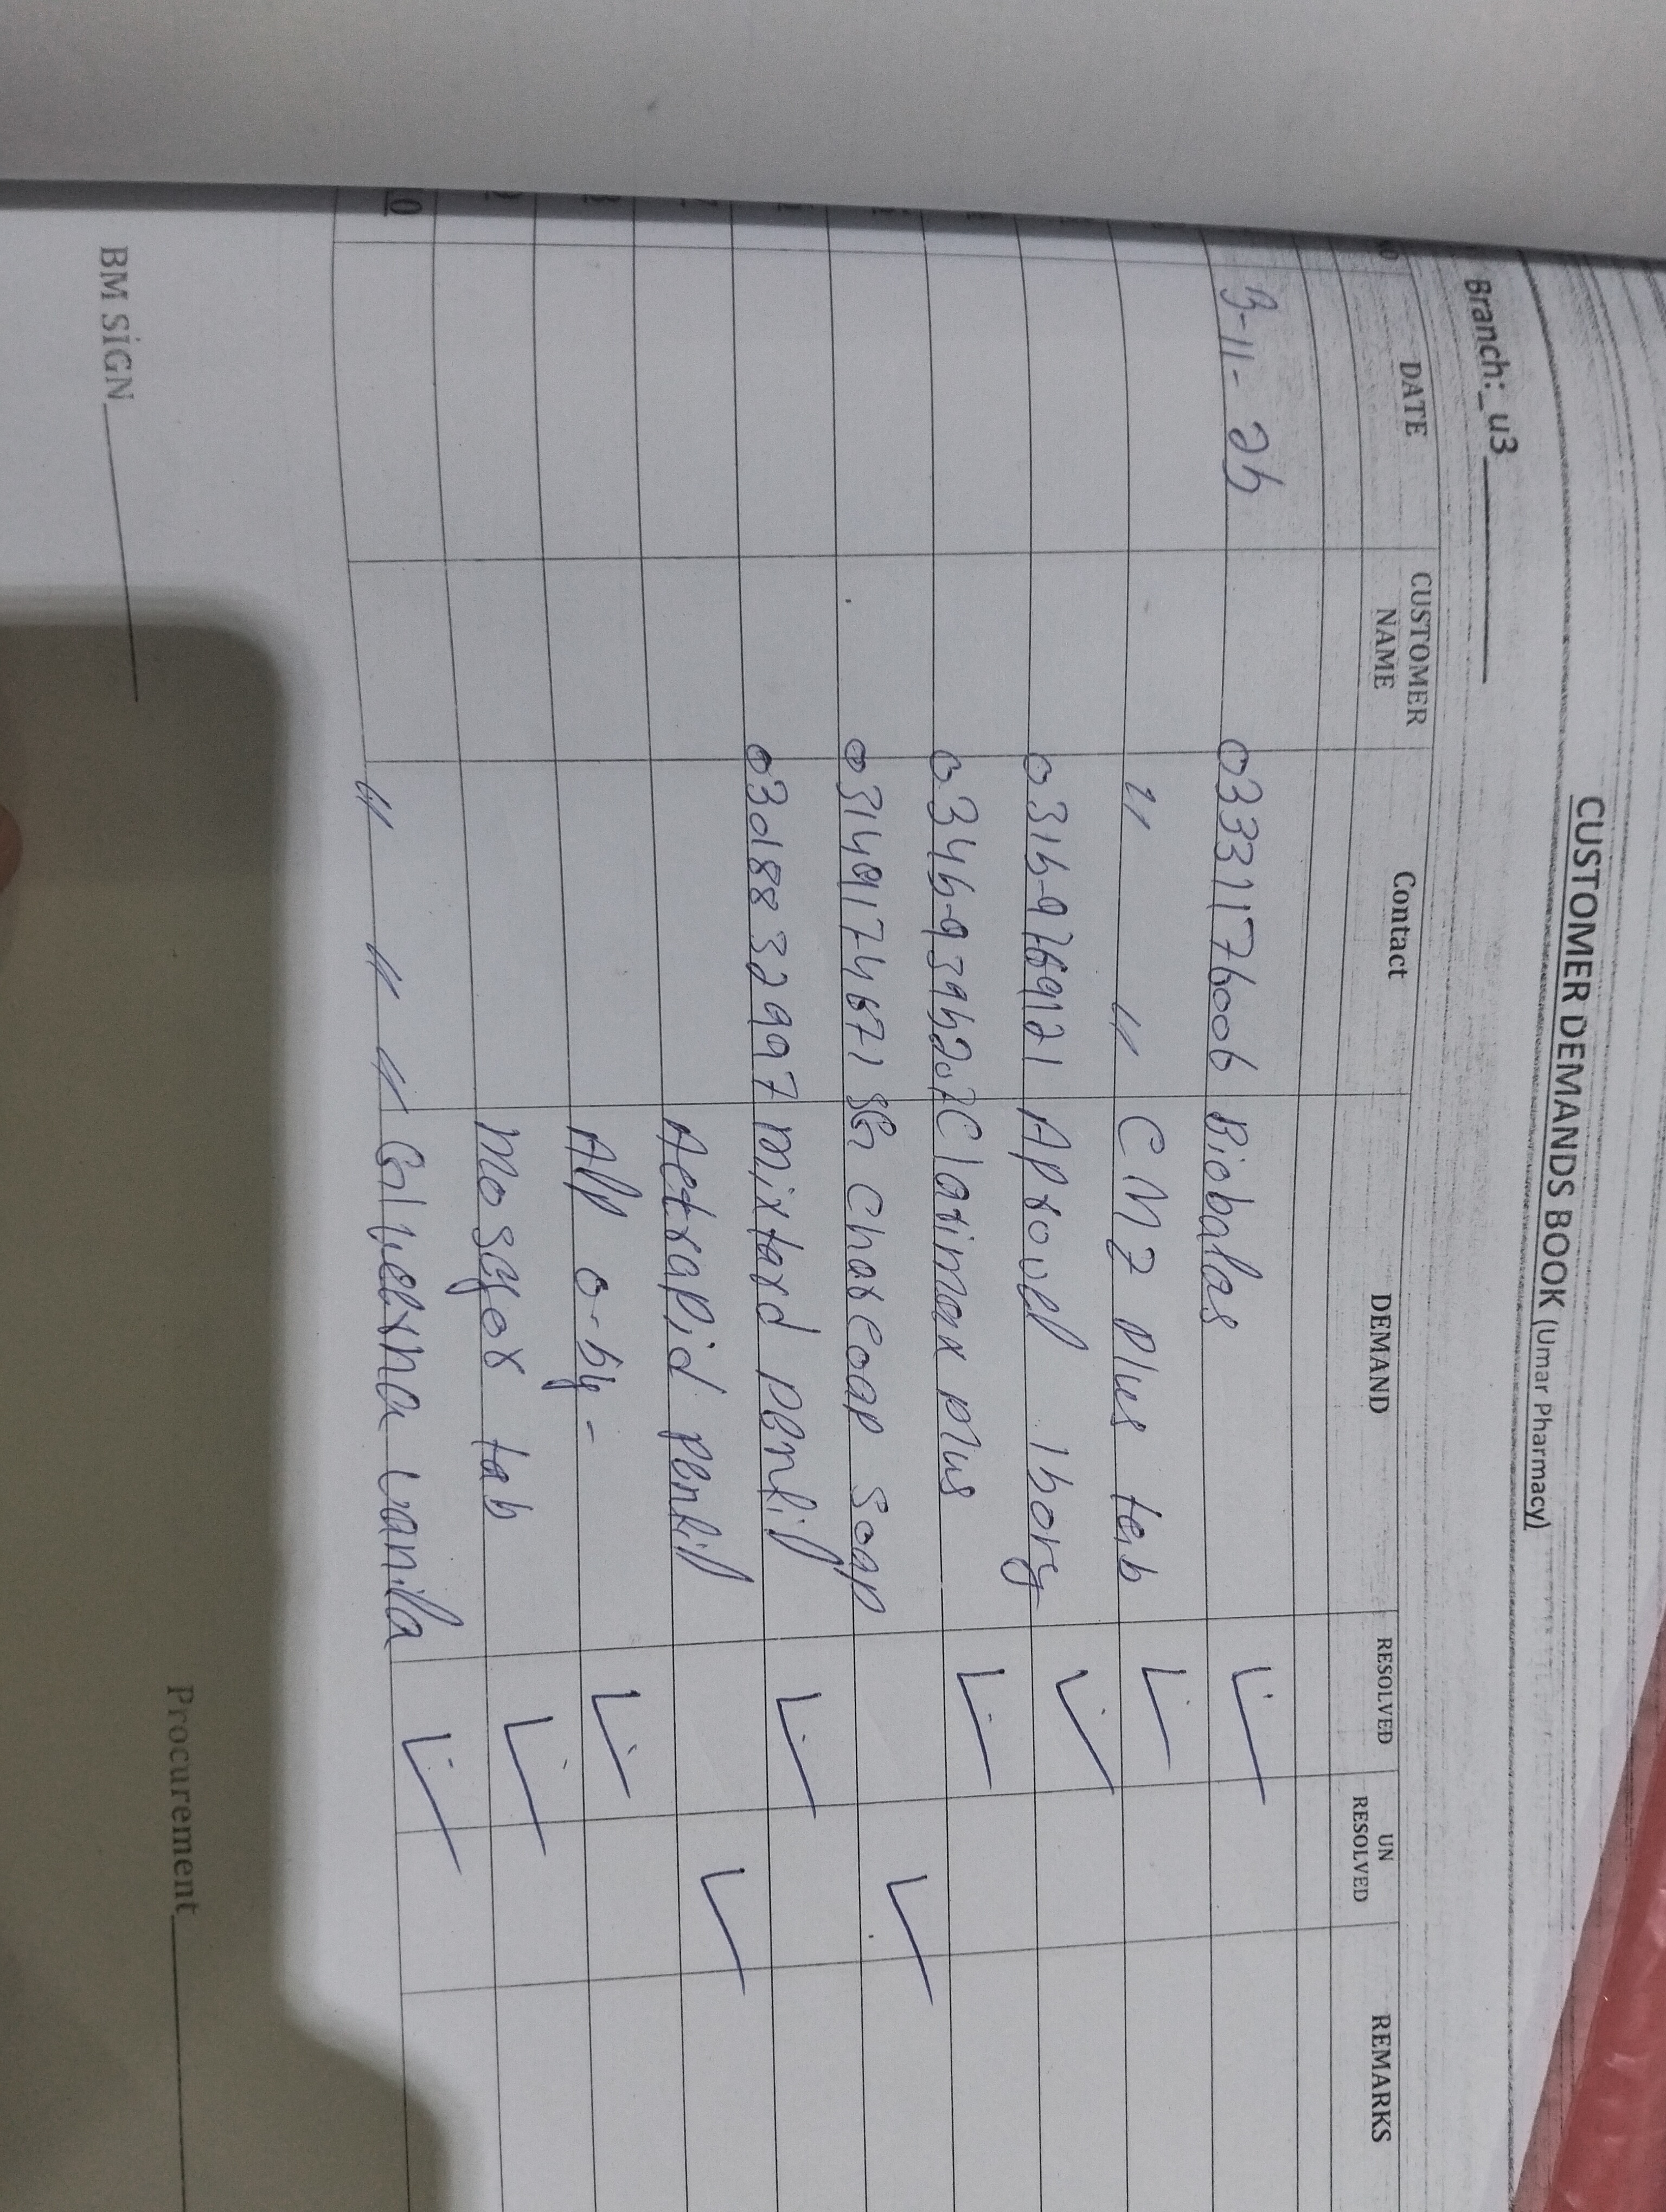 CUSTOMER DEMANDS BOOK (Umar Pharmacy)
Branch:_u3
DATE CUSTOMER NAME Contact DEMAND RESOLVED UN RESOLVED REMARKS
3-11-25 03331176006 Biobalas ✓
" " CMZ Plus tab ✓
0315-9769721 Aprovel 150mg ✓
0345-9395207 Clarimax plus ✓
03149174671 SG Charcoap Soap ✓
03018832997 mixtard Penfil ✓
Actrapid Penfil ✓
Alp 0.5mg ✓
Mosgor tab ✓
10 " " " Glucerna Vanilla ✓
BM SiGN
Procurement